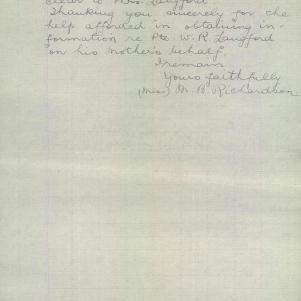 dear to Mrs. Langford.
Thanking you sincerely for the
help afforded in obtaining in-
formation re Pte. W. R. Langford
on his mother's behalf,
I remain
Yours faithfully
(Mrs) M. B. Richardson